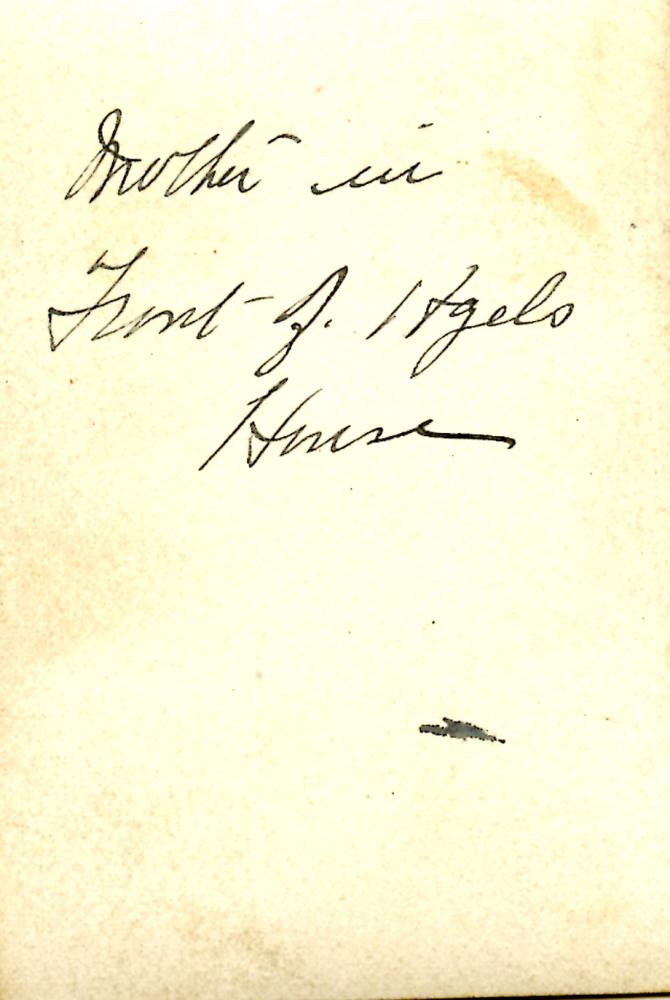 Mother in
Front of. Hgels
House